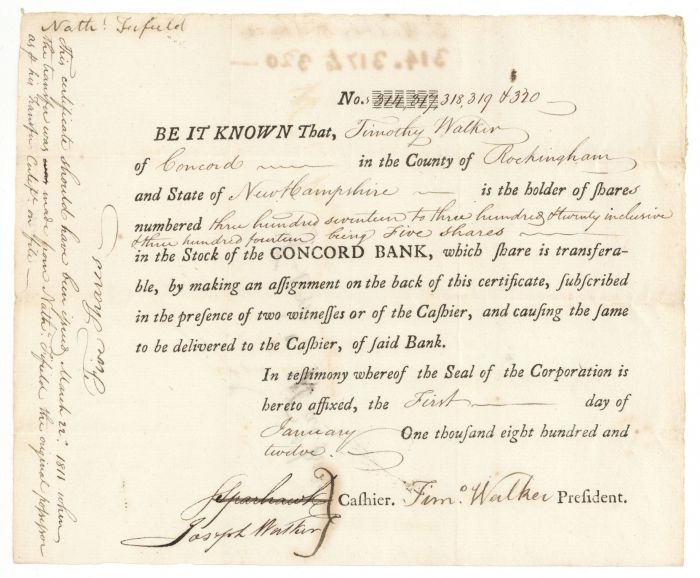 Nath.l Fifield
314. 317 & 320 —
No.s 314, 317, 318, 319 & 320 —
BE IT KNOWN That, Timothy Walker
of Concord — in the County of Rockingham
and State of New Hampshire — is the holder of ſhares
numbered three hundred seventeen to three hundred & twenty inclusive
& three hundred fourteen being Five shares —
in the Stock of the CONCORD BANK, which ſhare is transfera-
ble, by making an aſſignment on the back of this certificate, ſubſcribed
in the preſence of two witneſſes or of the Caſhier, and cauſing the ſame
to be delivered to the Caſhier, of ſaid Bank.
In teſtimony whereof the Seal of the Corporation is
hereto affixed, the First — day of
January One thouſand eight hundred and
twelve.
Sparhawk
Joseph Walker
Caſhier. Tim.o Walker Preſident.
This certificate should have been issued, March 22.d 1811 when
the transfer was made from Nath.l Fifield the original possessor
as p his Transfer Certift on file —